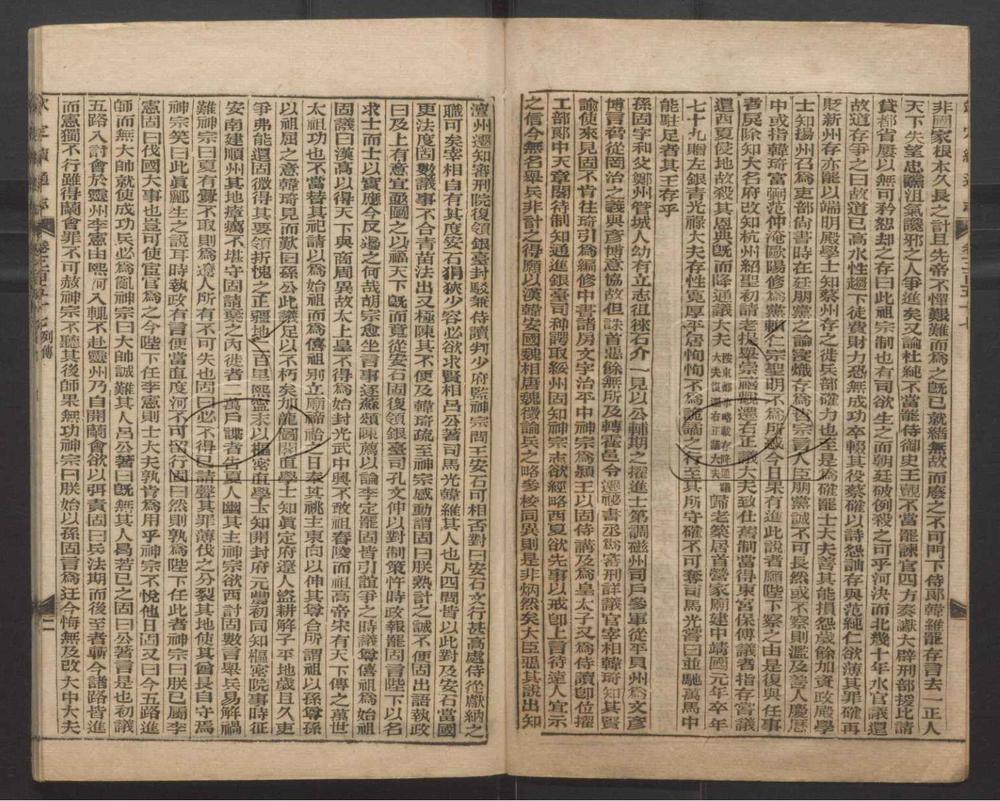 非國家根本久長之計且先帝不憚艱難而為之既已就緒無故而廢之不可門下侍郎韓維罷存言去一正人
天下失望忠讜沮氣讒邪之人爭進矣又論杜純不當罷侍御史王覿不當罷諫官四方奏讞大辟刑部援比請
貸都省屢以無可矜恕却之存曰此祖宗制也有司欲生之而朝廷破例殺之可乎河決而北幾十年水官議還
故道存爭之曰故道已高水性趨下徒費財力恐無成功卒輟其役蔡確以詩怨訕存與范純仁欲薄其罪確再
財新州存亦罷以端明殿學士知蔡州存之徙兵部確力也至是為確罷士大夫善其能損怨歲餘加資政殿學
士知揚州召為吏部尚書時在廷朋黨之論寖熾存為哲宗言人臣朋黨誠不可長然或不察則濫及善人慶曆
中或指韓琦富弼范仲淹歐陽修為黨賴仁宗聖明不為所惑今日果有進此說者願陛下察之由是復與任事
者戾除知大名府改知杭州紹聖初請老提舉崇禧觀遷右正議大夫致仕舊制當得東宮保傅議者指存嘗議
還西夏侵地故殺其恩典既而降通議大夫
歸老築居首營家廟建中靖國元年卒年
七十九贈左銀青光祿大夫存性寬厚平居恂恂不為詭譎之行至其所守確不可奪司馬光嘗曰並馳萬馬中
能駐足者其王存乎
孫固字和父鄭州管城人幼有立志徂徠石介一見以公輔期之擢進士第調磁州司戶參軍從平貝州為文彥
博言脅從罔治之義與彥博意協故但誅首惡餘無所及轉霍邑令遷秘書丞為審刑詳議官宰相韓琦知其賢
諭使來見固不肯往琦引為編修中書諸房文字治平中神宗為潁王以固侍講及為皇太子又為侍讀即位擢
工部郎中天章閣待制知通進銀臺司种諤取綏州固知神宗志欲經略西夏欲先事以戒即上言待遠人宜示
之信今無名舉兵非計之得願以漢韓安國魏相唐魏徵論兵之略參校同異則是非炳然矣大臣惡其說出知
澶州還知審刑院復領銀臺封駁兼侍讀判少府監神宗問王安石可相否對曰安石文行甚高處侍從獻納之
職可矣宰相自有其度安石狷狹少容必欲求賢相呂公著司馬光韓維其人也凡四問皆以此對及安石當國
更法度固數議事不合青苗法出又極陳其不便及韓琦疏至神宗感動謂固曰朕熟計之誠不便固出語執政
曰及上有意宜亟圖之以福天下既而竟從安石固復領銀臺司孔文仲以對制策忤時政報罷固言陛下以名
求士而士以實應今反過之何哉胡宗愈坐言事逐蘇頌陳薦以論李定罷固皆引誼爭之時議尊僖祖為始祖
固議曰漢高以得天下與商周異故太上皇不得為始封光武中興不敢祖舂陵而祖高帝宋有天下傳之萬世
太祖功也不當替其祀請以為始祖而為僖祖別立廟禘祫之日奉其祧主東向以伸其尊合所謂祖以孫尊孫
以祖屈之意韓琦見而歎曰孫公此議足以不朽矣加龍圖閣直學士知真定府遼人盜耕解子平地歲且久吏
爭弗能還固微得其要領折愧之正疆地二百里熙寧末以樞密直學士知開封府元豐初同知樞密院事時征
安南建順州其地瘴癘不堪守固請棄之內徙者二萬戶諜者告夏人幽其主神宗欲西討固數言舉兵易解禍
難神宗曰夏有釁不取則為遼人所有不可失也固曰必不得已請聲其罪薄伐之分裂其地使其酋長自守焉
神宗笑曰此真酈生之說耳時執政有言便當直度河不可留行固曰然則孰為陛下任此者神宗曰朕已屬李
憲固曰伐國大事也豈可使宦官為之今陛下任李憲則士大夫孰肯為用乎神宗不悅他日固又曰今五路進
師而無大帥就使成功兵必為亂神宗曰大帥誠難其人呂公著曰既無其人曷若已之固曰公著言是也初議
五路入討會於靈州李憲由熙河入輒不赴靈州乃自開蘭會欲以弭責固曰兵法期而後至者斬今諸路皆進
而憲獨不行雖得蘭會罪不可赦神宗不聽其後師果無功神宗曰朕始以孫固言為迂今悔無及改太中大夫